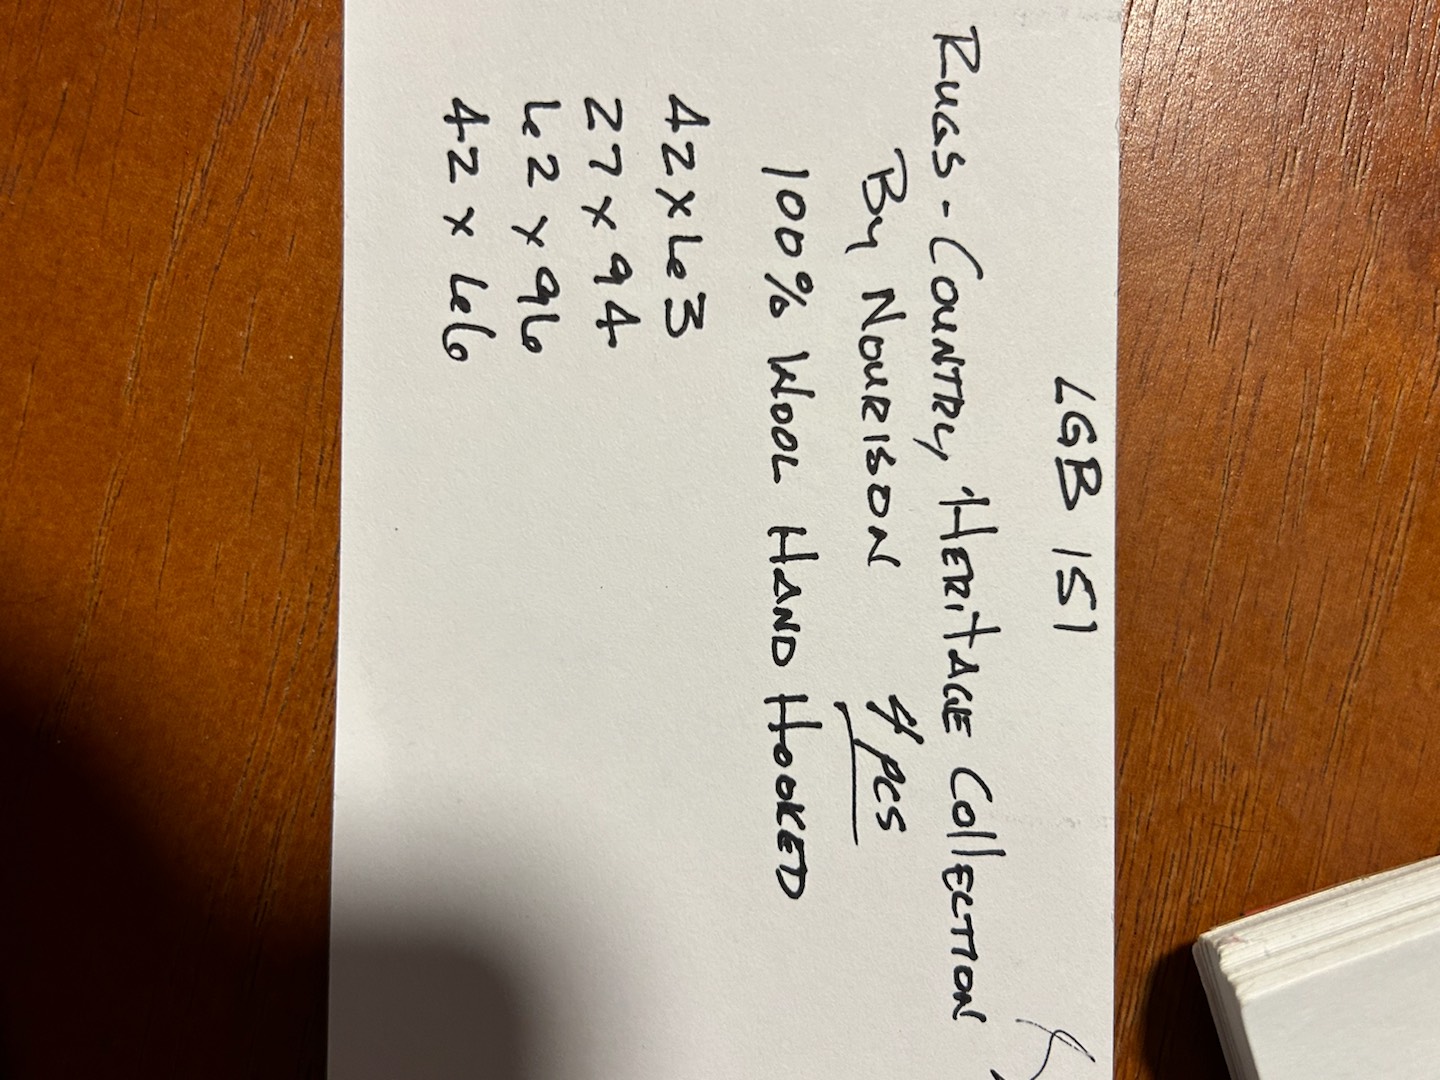 LGB 151
RUGS - COUNTRY HERITAGE COLLECTION
BY NOURISON 4 PCS
100% WOOL HAND HOOKED
42 x 63
27 x 94
62 x 96
42 x 66